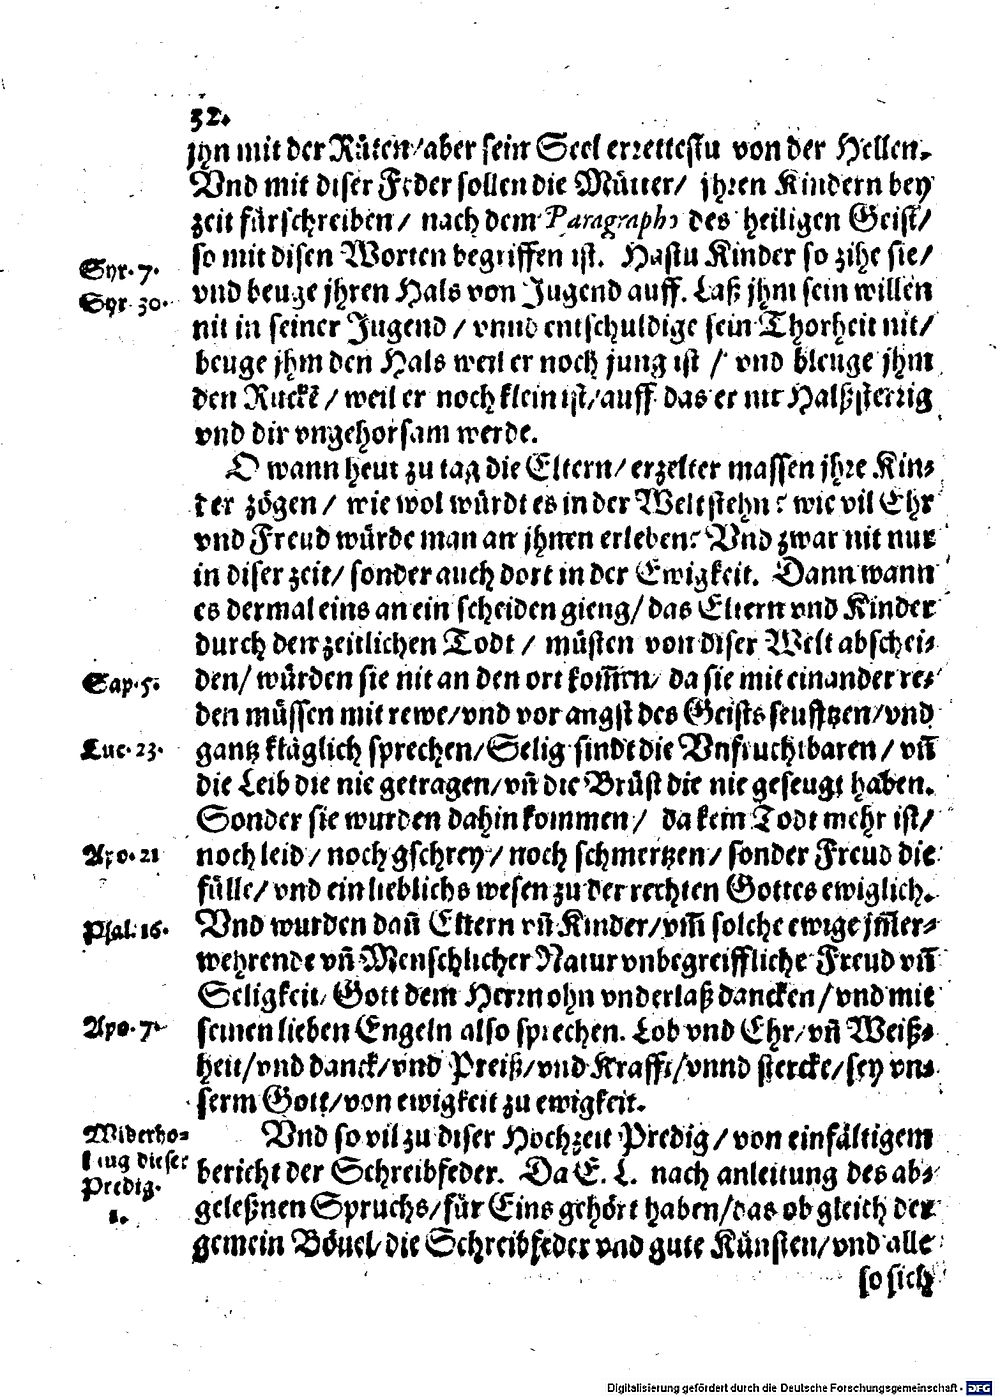 32.
jhn mit der Růten/aber sein Seel errettestu von der Hellen.
Vnd mit diser Feder sollen die Můtter/ jhren Kindern bey
zeit fürschreiben/ nach dem Paragrapho des heiligen Geist/
so mit disen Worten begriffen ist. Hastu Kinder so zihe sie/
Syr. 7.
vnd beuge jhren Hals von Jugend auff. Laß jhm sein willen
Syr. 30.
nit in seiner Jugend/ vnnd entschuldige sein Thorheit nit/
beuge jhm den Hals weil er noch jung ist/ vnd bleuge jhm
den Ruckē/ weil er noch klein ist/auff das er nit Halßsterrig
vnd dir vngehorsam werde.
O wann heut zu tag die Eltern/ erzelter massen jhre Kin-
der zögen/ wie wol würdt es in der Welt stehn? wie vil Ehr
vnd Freud würde man an jhnen erleben? Vnd zwar nit nur
in diser zeit/ sonder auch dort in der Ewigkeit. Dann wann
es dermal eins an ein scheiden gieng/ das Eltern vnd Kinder
durch den zeitlichen Todt/ müsten von diser Welt abschei-
Sap. 5.
den/ würden sie nit an den ort kom̄en/ da sie mit einander re-
den müssen mit rewe/vnd vor angst des Geists seufftzen/vnd
Luc. 23.
gantz kläglich sprechen/Selig sindt die Vnfruchtbaren/ vn̄
die Leib die nie getragen/vn̄ die Brüst die nie geseugt haben.
Sonder sie wurden dahin kommen/ da kein Todt mehr ist/
Apo. 21
noch leid/ noch gschrey/ noch schmertzen/ sonder Freud die
fülle/ vnd ein lieblichs wesen zu der rechten Gottes ewiglich.
Psal. 16.
Vnd wurden dan̄ Eltern vn̄ Kinder/vm̄ solche ewige jm̄er-
wehrende vn̄ Menschlicher Natur vnbegreiffliche Freud vn̄
Seligkeit/ Gott dem Herrn ohn vnderlaß dancken/vnd mit
Apo. 7.
seinen lieben Engeln also sprechen. Lob vnd Ehr/vn̄ Weiß-
heit/vnd danck/vnd Preiß/vnd Krafft/vnnd stercke/sey vn-
serm Gott/von ewigkeit zu ewigkeit.
Widerho-
lung dieser
Predig.
1.
Vnd so vil zu diser Hochzeit Predig/ von einfältigem
bericht der Schreibfeder. Da E. L. nach anleitung des ab-
geleßnen Spruchs/für Eins gehört haben/das ob gleich der
gemein Bövel/die Schreibfeder vnd gute Künsten/vnd alle
so sich
Digitalisierung gefördert durch die Deutsche Forschungsgemeinschaft - DFG